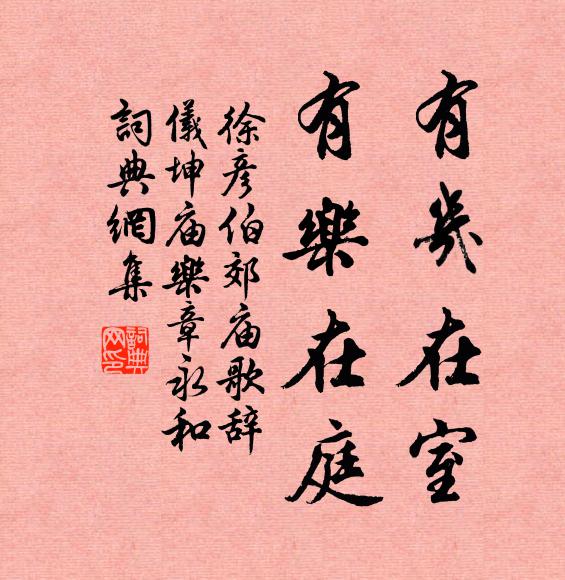 有几在室
有樂在庭
徐彦伯郊庙歌辞
儀坤庙樂章永和
詞典網集
詞典网印